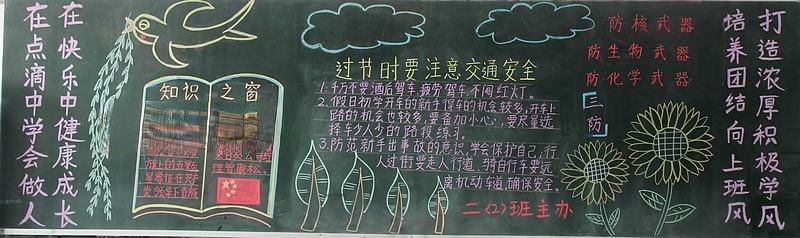 在快乐中健康成长
在点滴中学会做人
知识之窗
旗上的五颗
星象征在共产
党领导下各族
理学
过节时要注意交通安全
1.千万不要酒后驾车.疲劳驾车.不闯红灯。
2.假日初学开车的新手得车的机会较多,开车上
路的机会也较多,要备加小心,要尽量选
择车少人少的路段练习。
3.防范新手出事故的意识,学会保护自己,行
人过街要走人行道,骑自行车要远
离机动车道,确保安全。
二〈2〉班主办
防核武器
防生物武器
防化学武器
三防
打造浓厚积极学风
培养团结向上班风